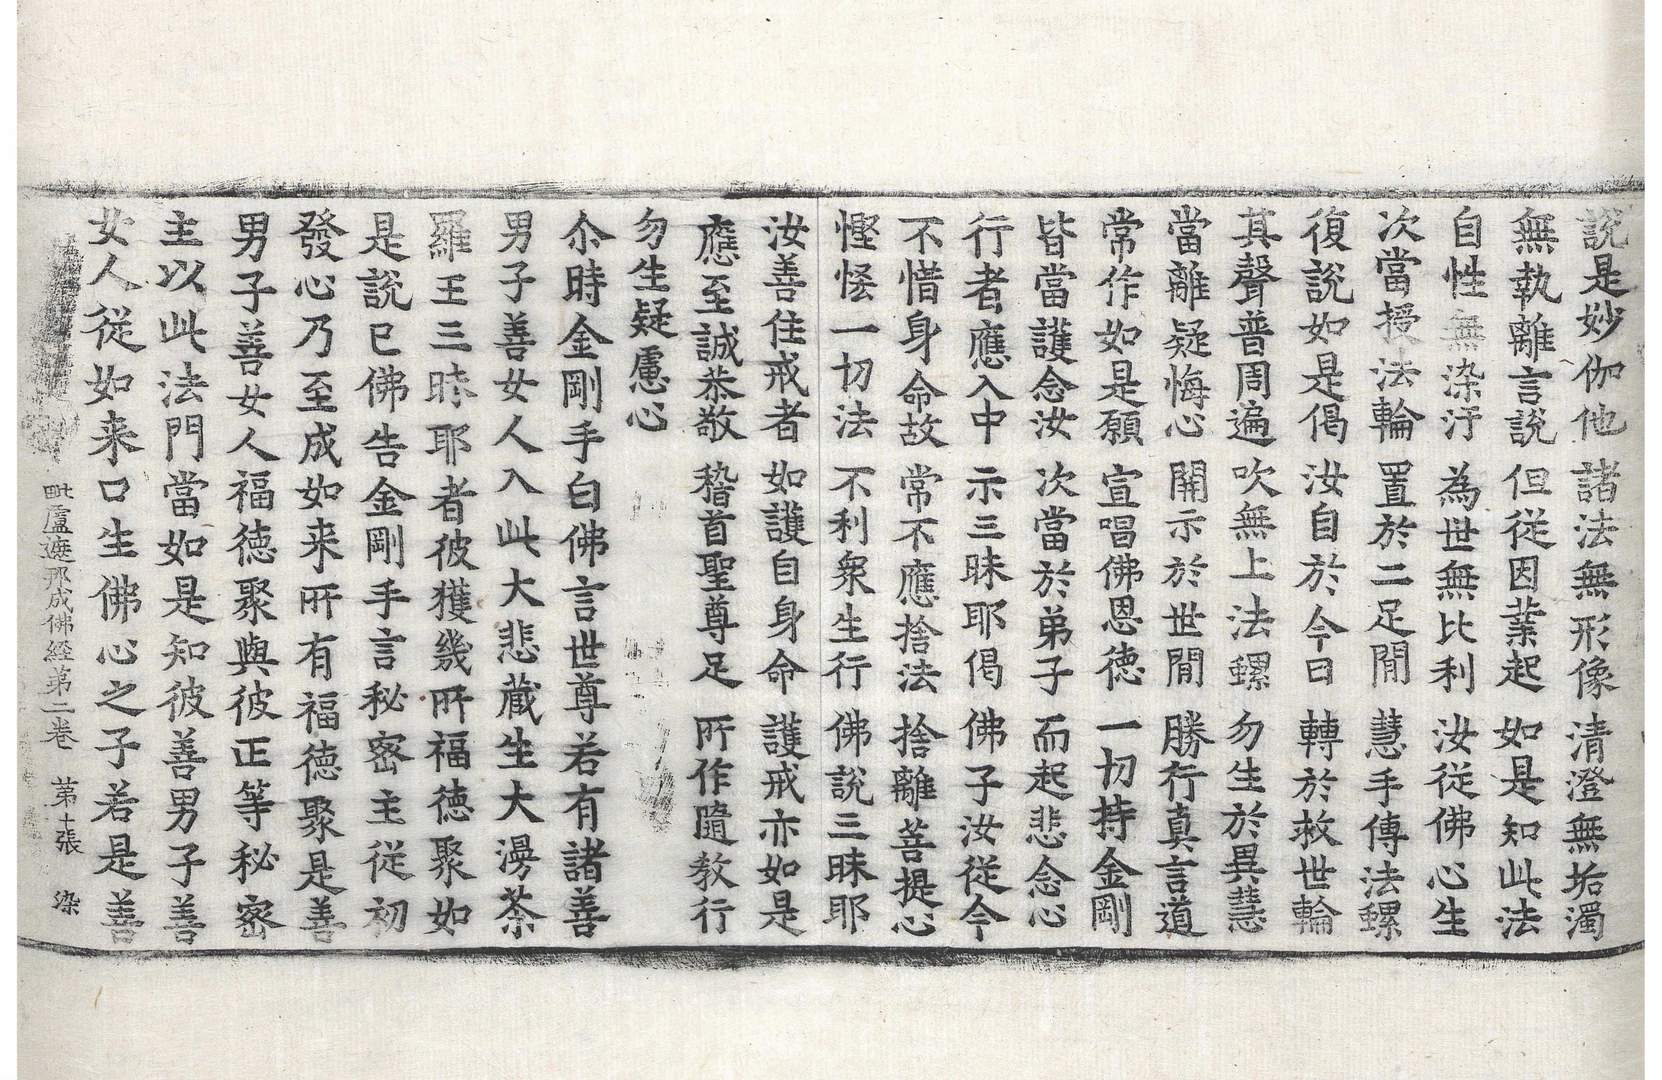 說是妙伽他　諸法無形像　清澄無垢濁
無執離言說　但從因業起　如是知此法
自性無染汙　為世無比利　汝從佛心生
次當授法輪　置於二足閒　慧手傳法螺
復說如是偈　汝自於今日　轉於救世輪
其聲普周遍　吹無上法螺　勿生於異慧
當離疑悔心　開示於世閒　勝行真言道
常作如是願　宣唱佛恩德　一切持金剛
皆當護念汝　次當於弟子　而起悲念心
行者應入中　示三昧耶偈　佛子汝從今
不惜身命故　常不應捨法　捨離菩提心
慳恡一切法　不利衆生行　佛說三昧耶
汝善住戒者　如護自身命　護戒亦如是
應至誠恭敬　稽首聖尊足　所作隨教行
勿生疑慮心
尒時金剛手白佛言世尊若有諸善
男子善女人入此大悲藏生大漫荼
羅王三昧耶者彼獲幾所福德聚如
是說已佛告金剛手言秘密主從初
發心乃至成如来所有福德聚是善
男子善女人福德聚與彼正等秘密
主以此法門當如是知彼善男子善
女人從如来口生佛心之子若是善
毗盧遮那成佛經第二卷　第十張　染